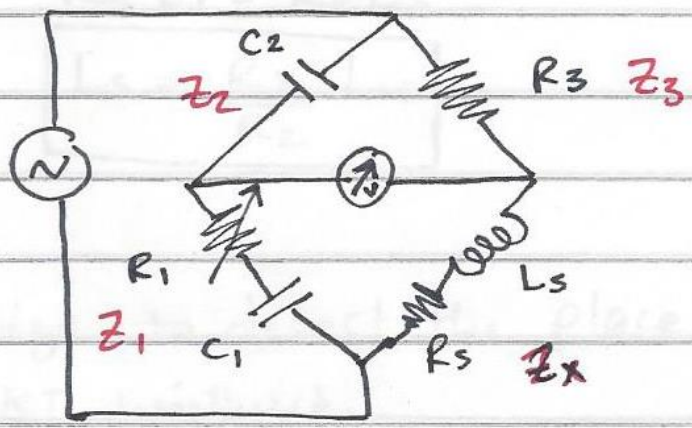 C2
Z2
R3 Z3
R1
C1
Z1
Ls
Rs
Zx